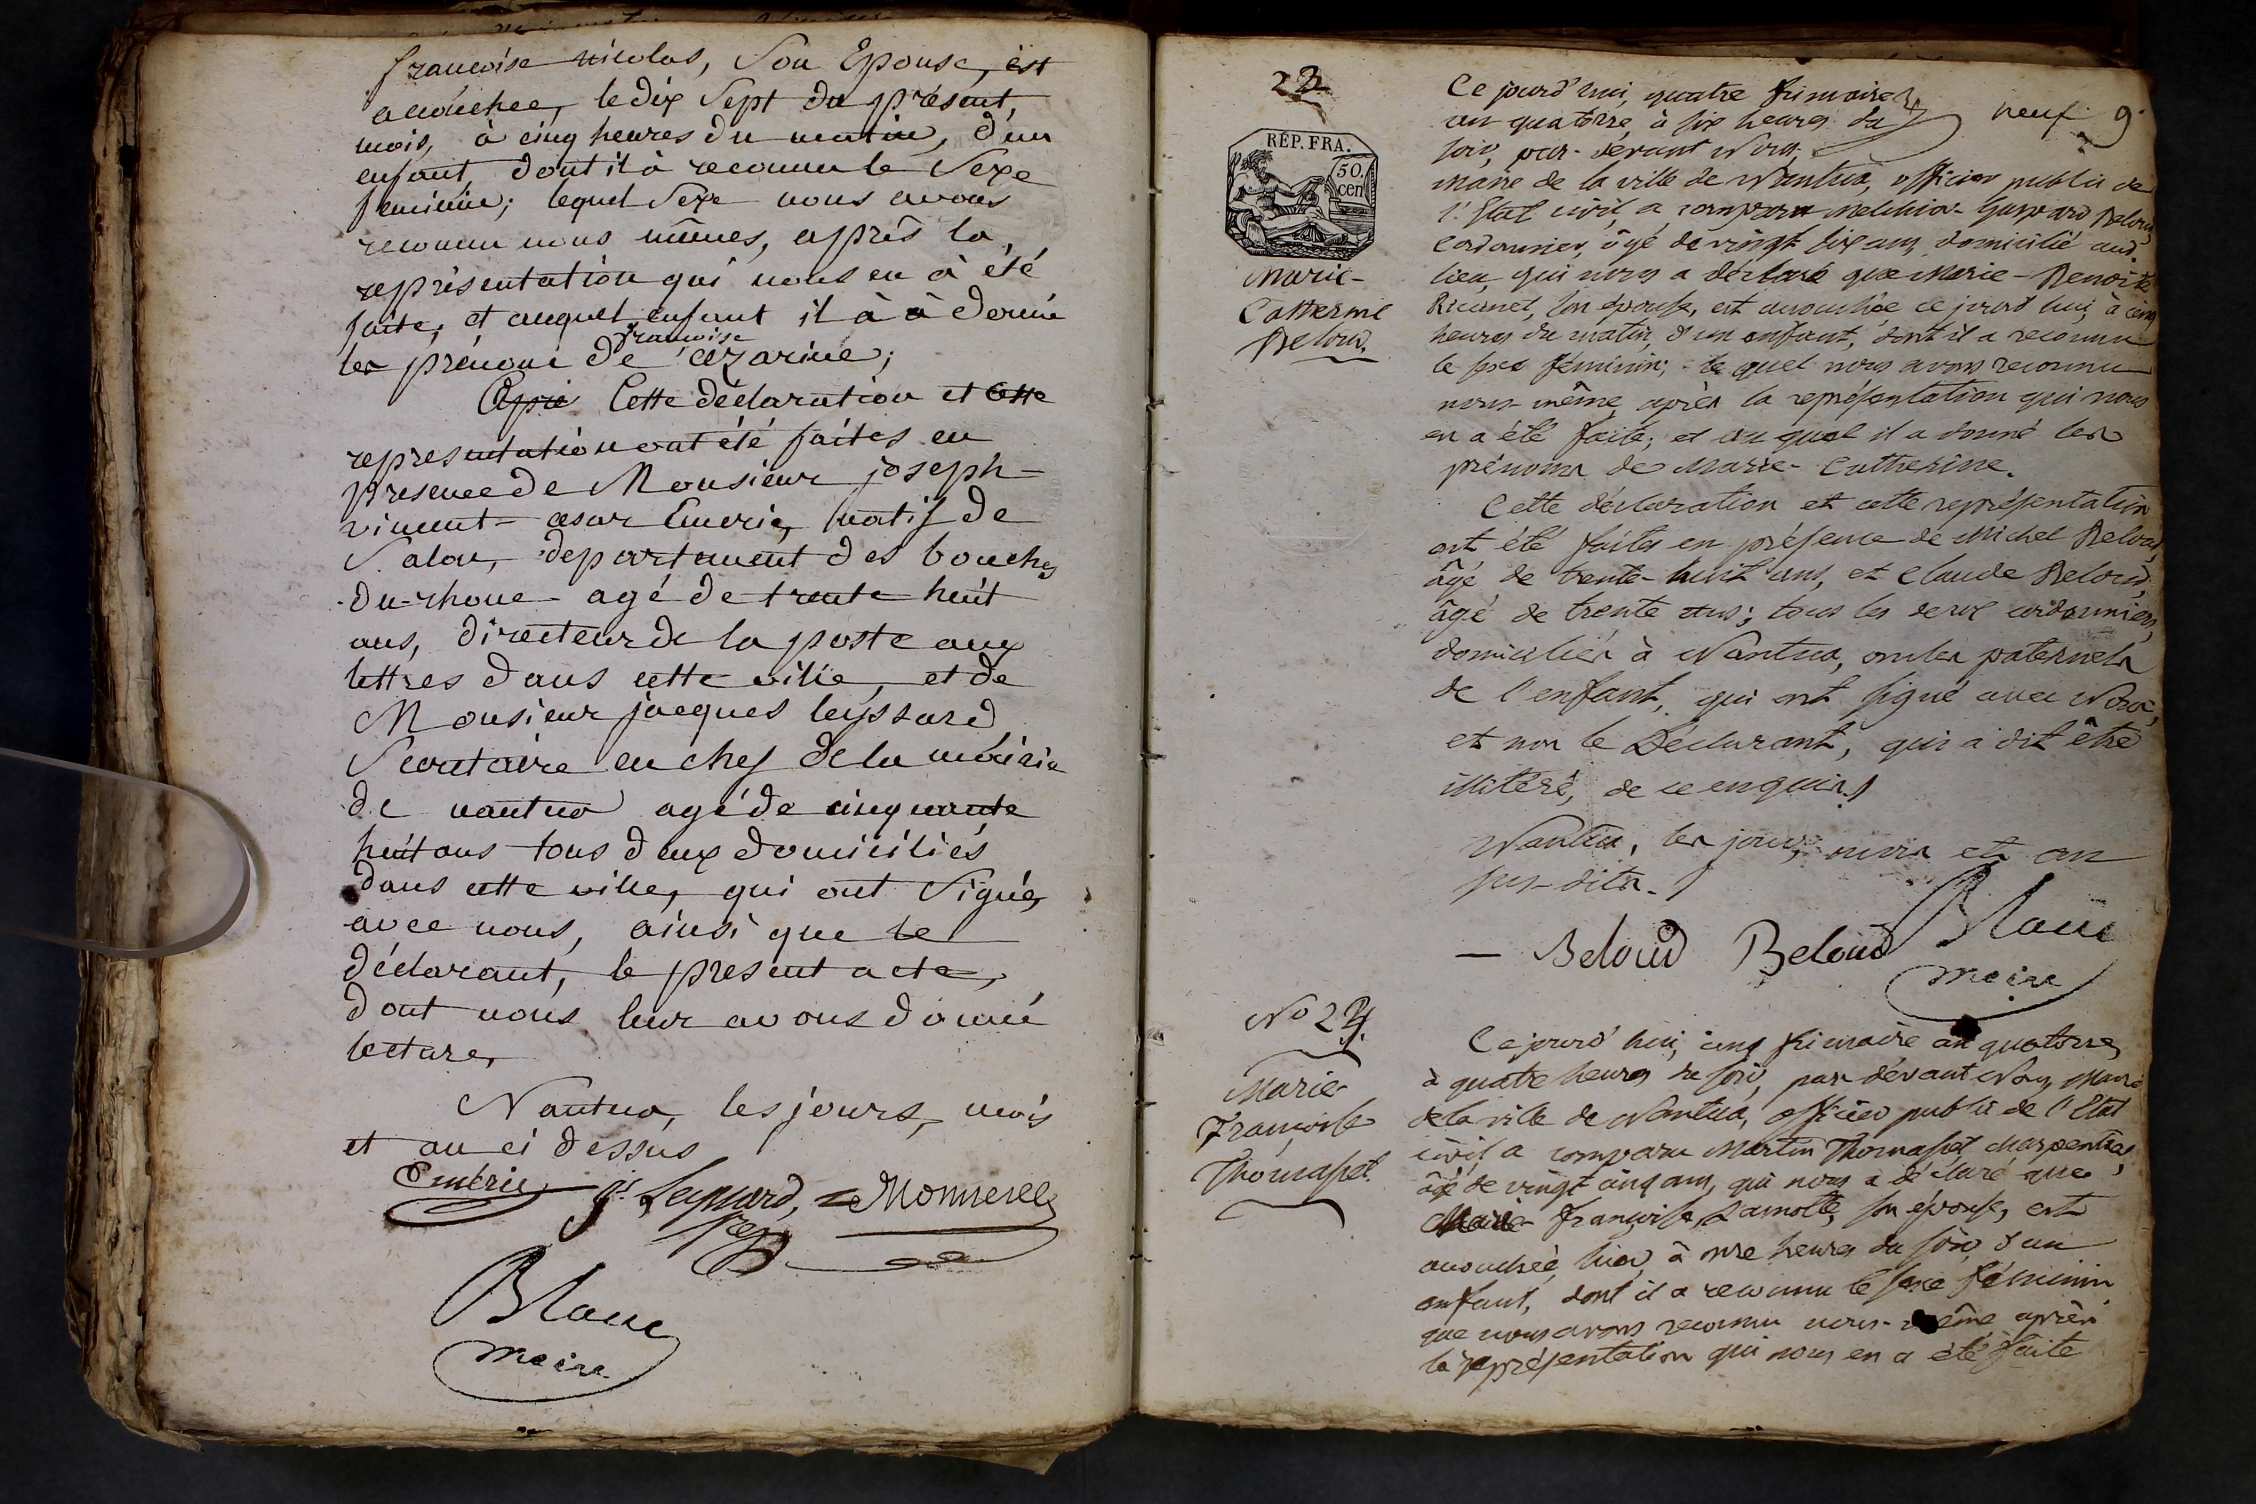 françoise nicolas, Son Epouse, èst
accouchée, le dix Sept du présent
mois, à cinq heures du matin, d'un
enfant, dont il à reconnu le Sexe
feminin; lequel Sexe nous avons
reconnu nous mêmes, après la
représentation qui nous en à été
faite, et auquel enfant il à à donné
françoise
les prénom de cézarine;
Après Cette déclaration et Cette
representation ont été faites en
presence de Monsieur joseph-
vincent-cesar Emeric, natif de
Salon, departement des bouches
-du-rhone agé de trente huit
ans, directeur de la poste aux
lettres dans cette ville, et de
Monsieur jacques leyssard
Secretaire en chef de la mairie
de nantua agé de cinquante
huit ans tous deux domiciliés
dans cette ville, qui ont Signé,
avec nous, ainsi que le
déclarant, le present acte,
dont nous leur avons donné
lecture,
Nantua, les jours, mois
et an ci dessus
Emeric Js. Leyssard, Monnerel
Blanc
maire
23
RÉP. FRA.
50.
cen
Marie-
Catherine
Beloud.
neuf 9.
Ce jourd'hui, quatre frimaire
an quatorze, à six heures du
soir, par-devant Nous,
maire de la ville de Nantua, officier public de
l'Etat civil, a comparu Melchior-Gaspard Beloud,
cordonnier, âgé de vingt six ans, domicilié aud.
lieu, qui nous a déclaré que Marie-Benoite
son épouse, est accouchée ce jourd'hui, à cinq
heures du matin, d'un enfant, dont il a reconnu
le sexe féminin; le quel nous avons reconnu
nous-même, après la représentation qui nous
en a été faite; et au quel il a donné les
prénoms de Marie-Catherine.
Cette déclaration et cette représentation
ont été faites en présence de Michel Beloud,
âgé de trente-huit ans, et Claude Beloud,
âgé de trente ans; tous les deux cordonniers,
domiciliés à Nantua, oncles paternels
de l'enfant, qui ont signé avec Nous,
et non le Déclarant, qui a dit être
illitéré, de ce enquis.
Nantua, les jour, mois et an
sus-dits.
Beloud Beloud Blanc
maire
No 24.
Marie
Françoise
Thomasset.
Ce jourd'hui, cinq frimaire an quatorze,
à quatre heures du soir, par-dévant Nous, Maire
de la ville de Nantua, officier public de l'Etat
civil, a comparu Martin Thomasset charpentier,
âgé de vingt cinq ans, qui nous a déclaré que
Marie françoise Lamotte, son épouse, est
accouchée, hier, à onze heures du soir, d'un
enfant, dont il a reconnu le sexe féminin
que nous avons reconnu nous-même après
la représentation qui nous en a été faite